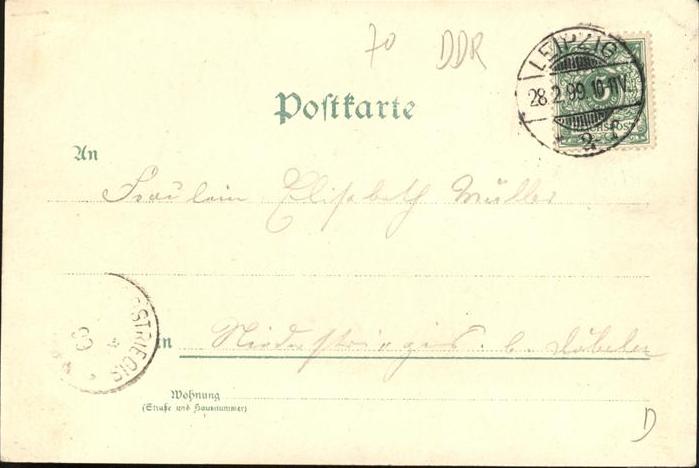 70 DDR
LEIPZIG
28.2.99.10-11V.
* 2 *
REICHSPOST
Postkarte
An
Fräulein Elisabeth Müller
STRIEGIS
99
in Niederstriegis b. Döbeln
Wohnung
(Straße und Hausnummer)
D